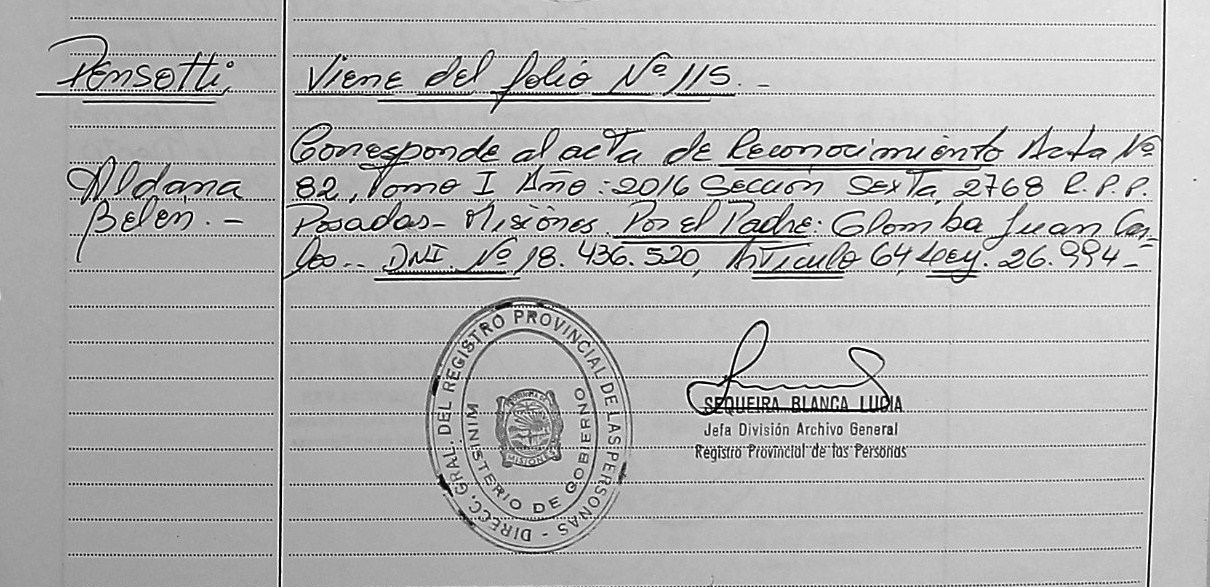 Pensotti,
Aldana
Belén. -
Viene del folio Nº 115. -
Corresponde al acta de Reconocimiento Acta Nº
82, Tomo I Año: 2016 Sección Sexta, 2768 R.P.P.
Posadas - Misiones. Por el Padre: Glomba Juan Car-
los.. DNI. Nº 18.436.520, Artículo 64, Ley. 26.994 -
DIRECC. GRAL. DEL REGISTRO PROVINCIAL DE LAS PERSONAS -
MINISTERIO DE GOBIERNO
PROVINCIA DE
MISIONES
SEQUEIRA BLANCA LUCIA
Jefa División Archivo General
Registro Provincial de las Personas